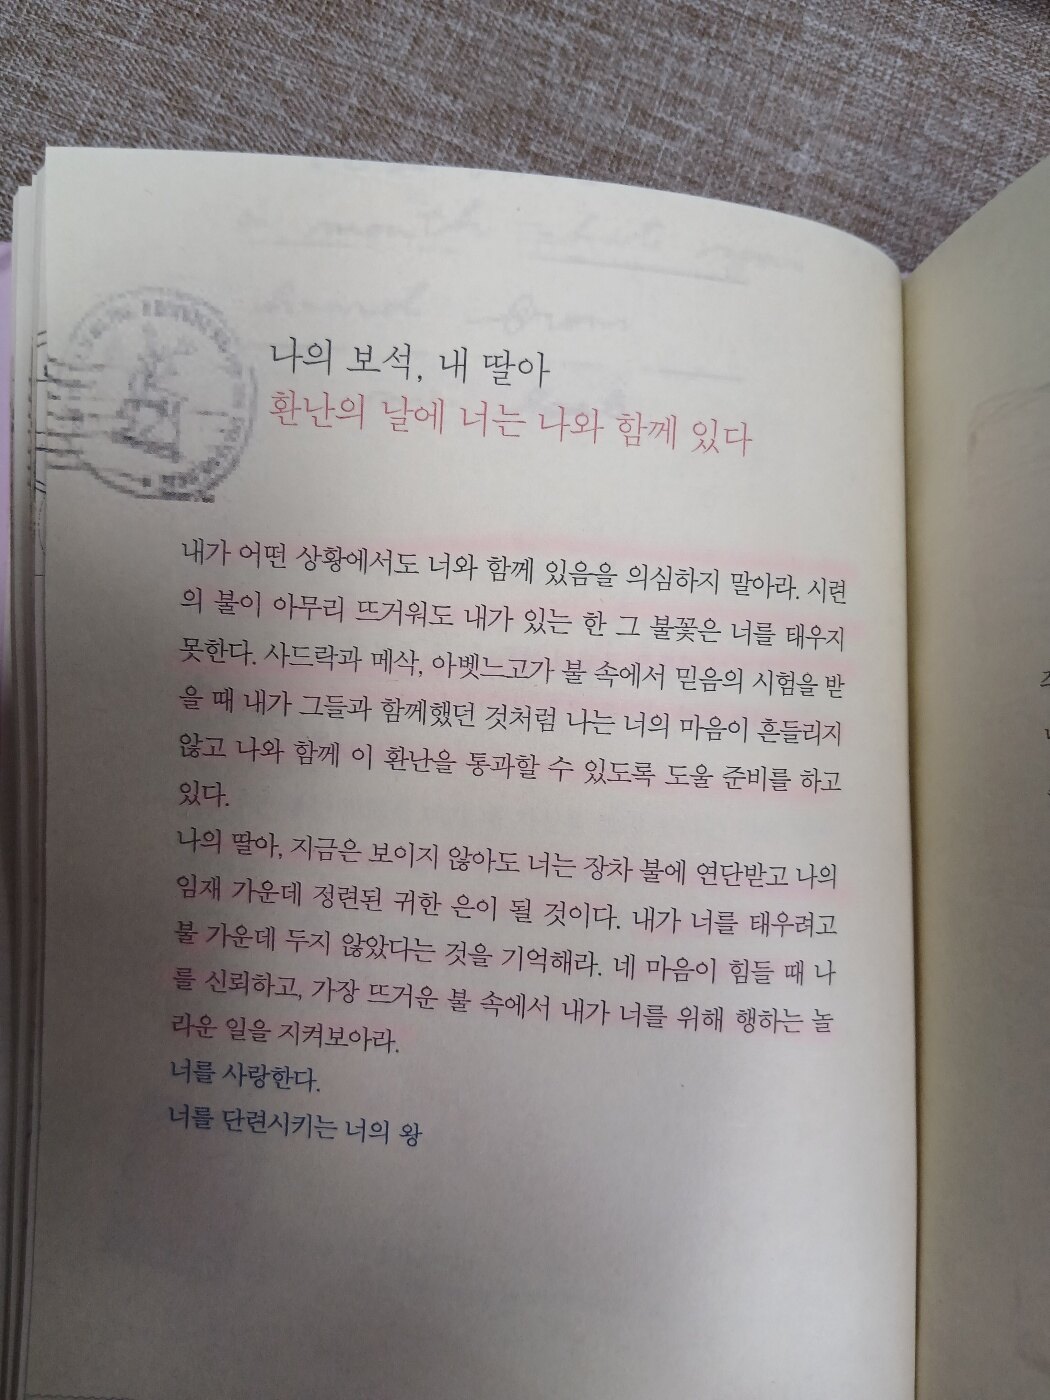 나의 보석, 내 딸아
환난의 날에 너는 나와 함께 있다
내가 어떤 상황에서도 너와 함께 있음을 의심하지 말아라. 시련
의 불이 아무리 뜨거워도 내가 있는 한 그 불꽃은 너를 태우지
못한다. 사드락과 메삭, 아벳느고가 불 속에서 믿음의 시험을 받
을 때 내가 그들과 함께했던 것처럼 나는 너의 마음이 흔들리지
않고 나와 함께 이 환난을 통과할 수 있도록 도울 준비를 하고
있다.
나의 딸아, 지금은 보이지 않아도 너는 장차 불에 연단받고 나의
임재 가운데 정련된 귀한 은이 될 것이다. 내가 너를 태우려고
불 가운데 두지 않았다는 것을 기억해라. 네 마음이 힘들 때 나
를 신뢰하고, 가장 뜨거운 불 속에서 내가 너를 위해 행하는 놀
라운 일을 지켜보아라.
너를 사랑한다.
너를 단련시키는 너의 왕